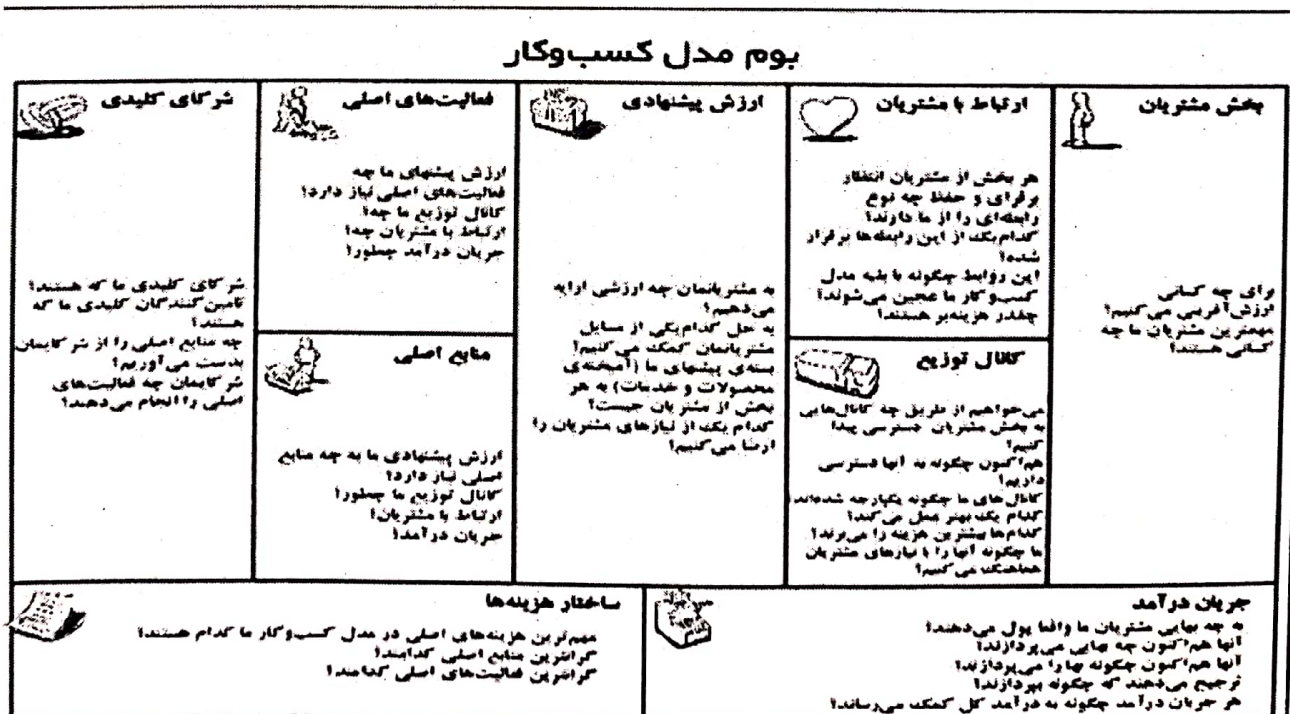 بوم مدل کسب‌وکار
بخش مشتریان
برای چه کسانی
ارزش‌آفرینی می‌کنیم؟
مهمترین مشتریان ما چه
کسانی هستند؟
ارتباط با مشتریان
هر بخش از مشتریان انتظار
برقرای و حفظ چه نوع
رابطه‌ای را از ما دارند؟
کدام‌یک از این رابطه‌ها برقرار
شده؟
این روابط چگونه با بقیه مدل
کسب‌وکار ما عجین می‌شوند؟
چقدر هزینه‌بر هستند؟
کانال توزیع
می‌خواهیم از طریق چه کانال‌هایی
به بخش مشتریان دسترسی پیدا
کنیم؟
هم‌اکنون چگونه به آنها دسترسی
داریم؟
کانال‌های ما چگونه یکپارچه شده‌اند؟
کدام یک بهتر عمل می‌کند؟
کدام‌ها بیشترین هزینه را می‌برند؟
ما چگونه آنها را با نیازهای مشتریان
هماهنگ می‌کنیم؟
ارزش پیشنهادی
به مشتریانمان چه ارزشی ارایه
می‌دهیم؟
به حل کدام‌یکی از مسایل
مشتریانمان کمک می‌کنیم؟
بسته‌ی پیشنهای ما (آمیخته‌ی
محصولات و خدمات) به هر
بخش از مشتریان چیست؟
کدام یک از نیازهای مشتریان را
ارضا می‌کنیم؟
فعالیت‌های اصلی
ارزش پیشنهای ما چه
فعالیت‌های اصلی نیاز دارد؟
کانال توزیع ما چه؟
ارتباط با مشتریان چه؟
جریان درآمد چطور؟
منابع اصلی
ارزش پیشنهادی ما به چه منابع
اصلی نیاز دارد؟
کانال توزیع ما چطور؟
ارتباط با مشتریان؟
جریان درآمد؟
شرکای کلیدی
شرکای کلیدی ما که هستند؟
تامین‌کنندگان کلیدی ما که
هستند؟
چه منابع اصلی را از شرکایمان
بدست می‌آوریم؟
شرکایمان چه فعالیت‌های
اصلی را انجام می‌دهند؟
جریان درآمد
به چه بهایی مشتریان ما واقعا پول می‌دهند؟
آنها هم‌اکنون چه بهایی می‌پردازند؟
آنها هم‌اکنون چگونه بها را می‌پردازند؟
ترجیح می‌دهند که چگونه بپردازند؟
هر جریان درآمد چگونه به درآمد کل کمک می‌رساند؟
ساختار هزینه‌ها
مهم‌ترین هزینه‌های اصلی در مدل کسب‌وکار ما کدام هستند؟
گرانترین منابع اصلی کدامند؟
گرانترین فعالیت‌های اصلی کدامند؟